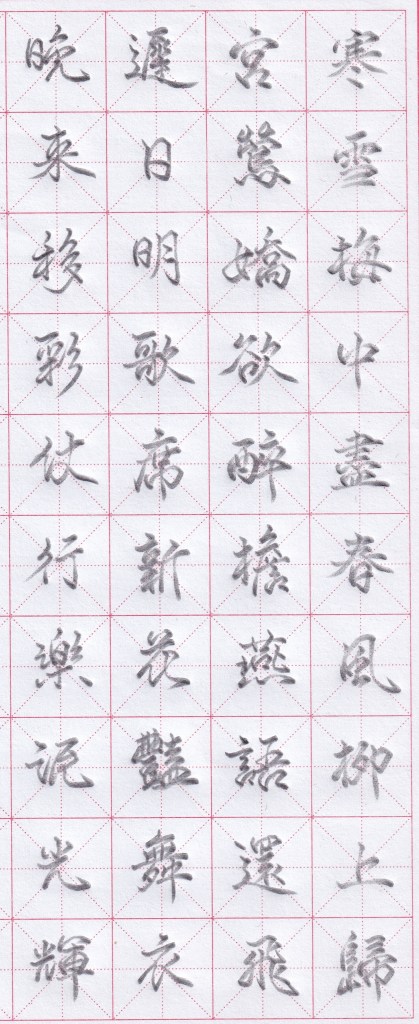 寒雪梅中盡春風柳上歸
宮鶯嬌欲醉檐燕語還飛
遲日明歌席新花豔舞衣
晚来移彩仗行樂泥光輝